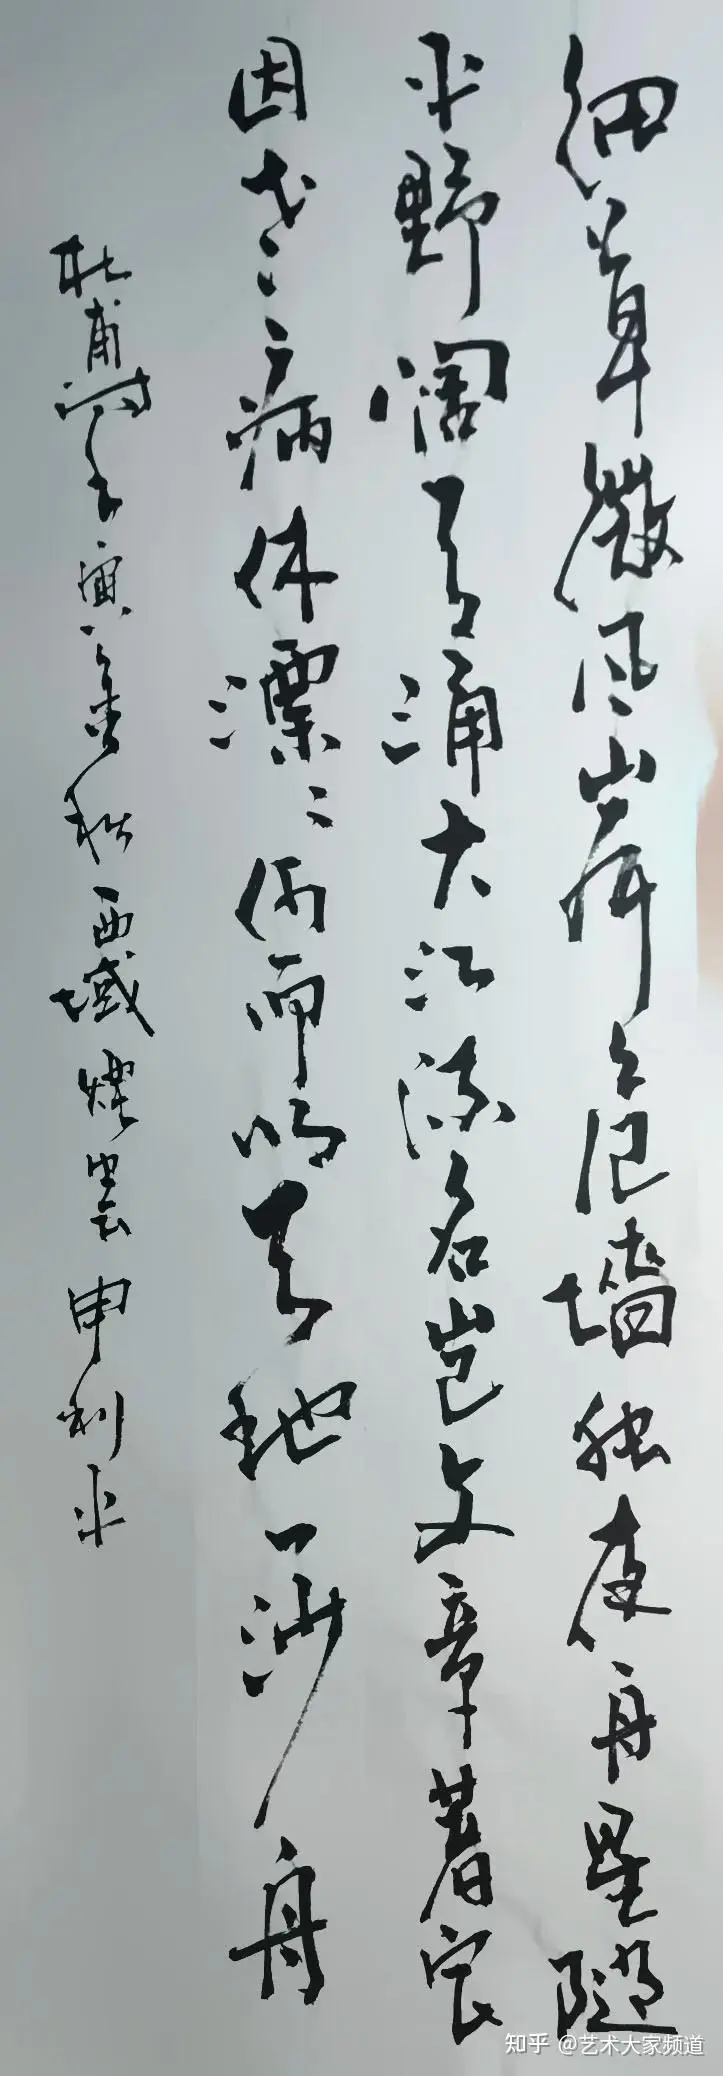 细草微风岸危墙独夜舟星随
平野阔月涌大江流名岂文章著官
因老病休漂〻何而似天地一沙舟
杜甫诗壬寅金秋西域煙雲申利平
知乎 @艺术大家频道